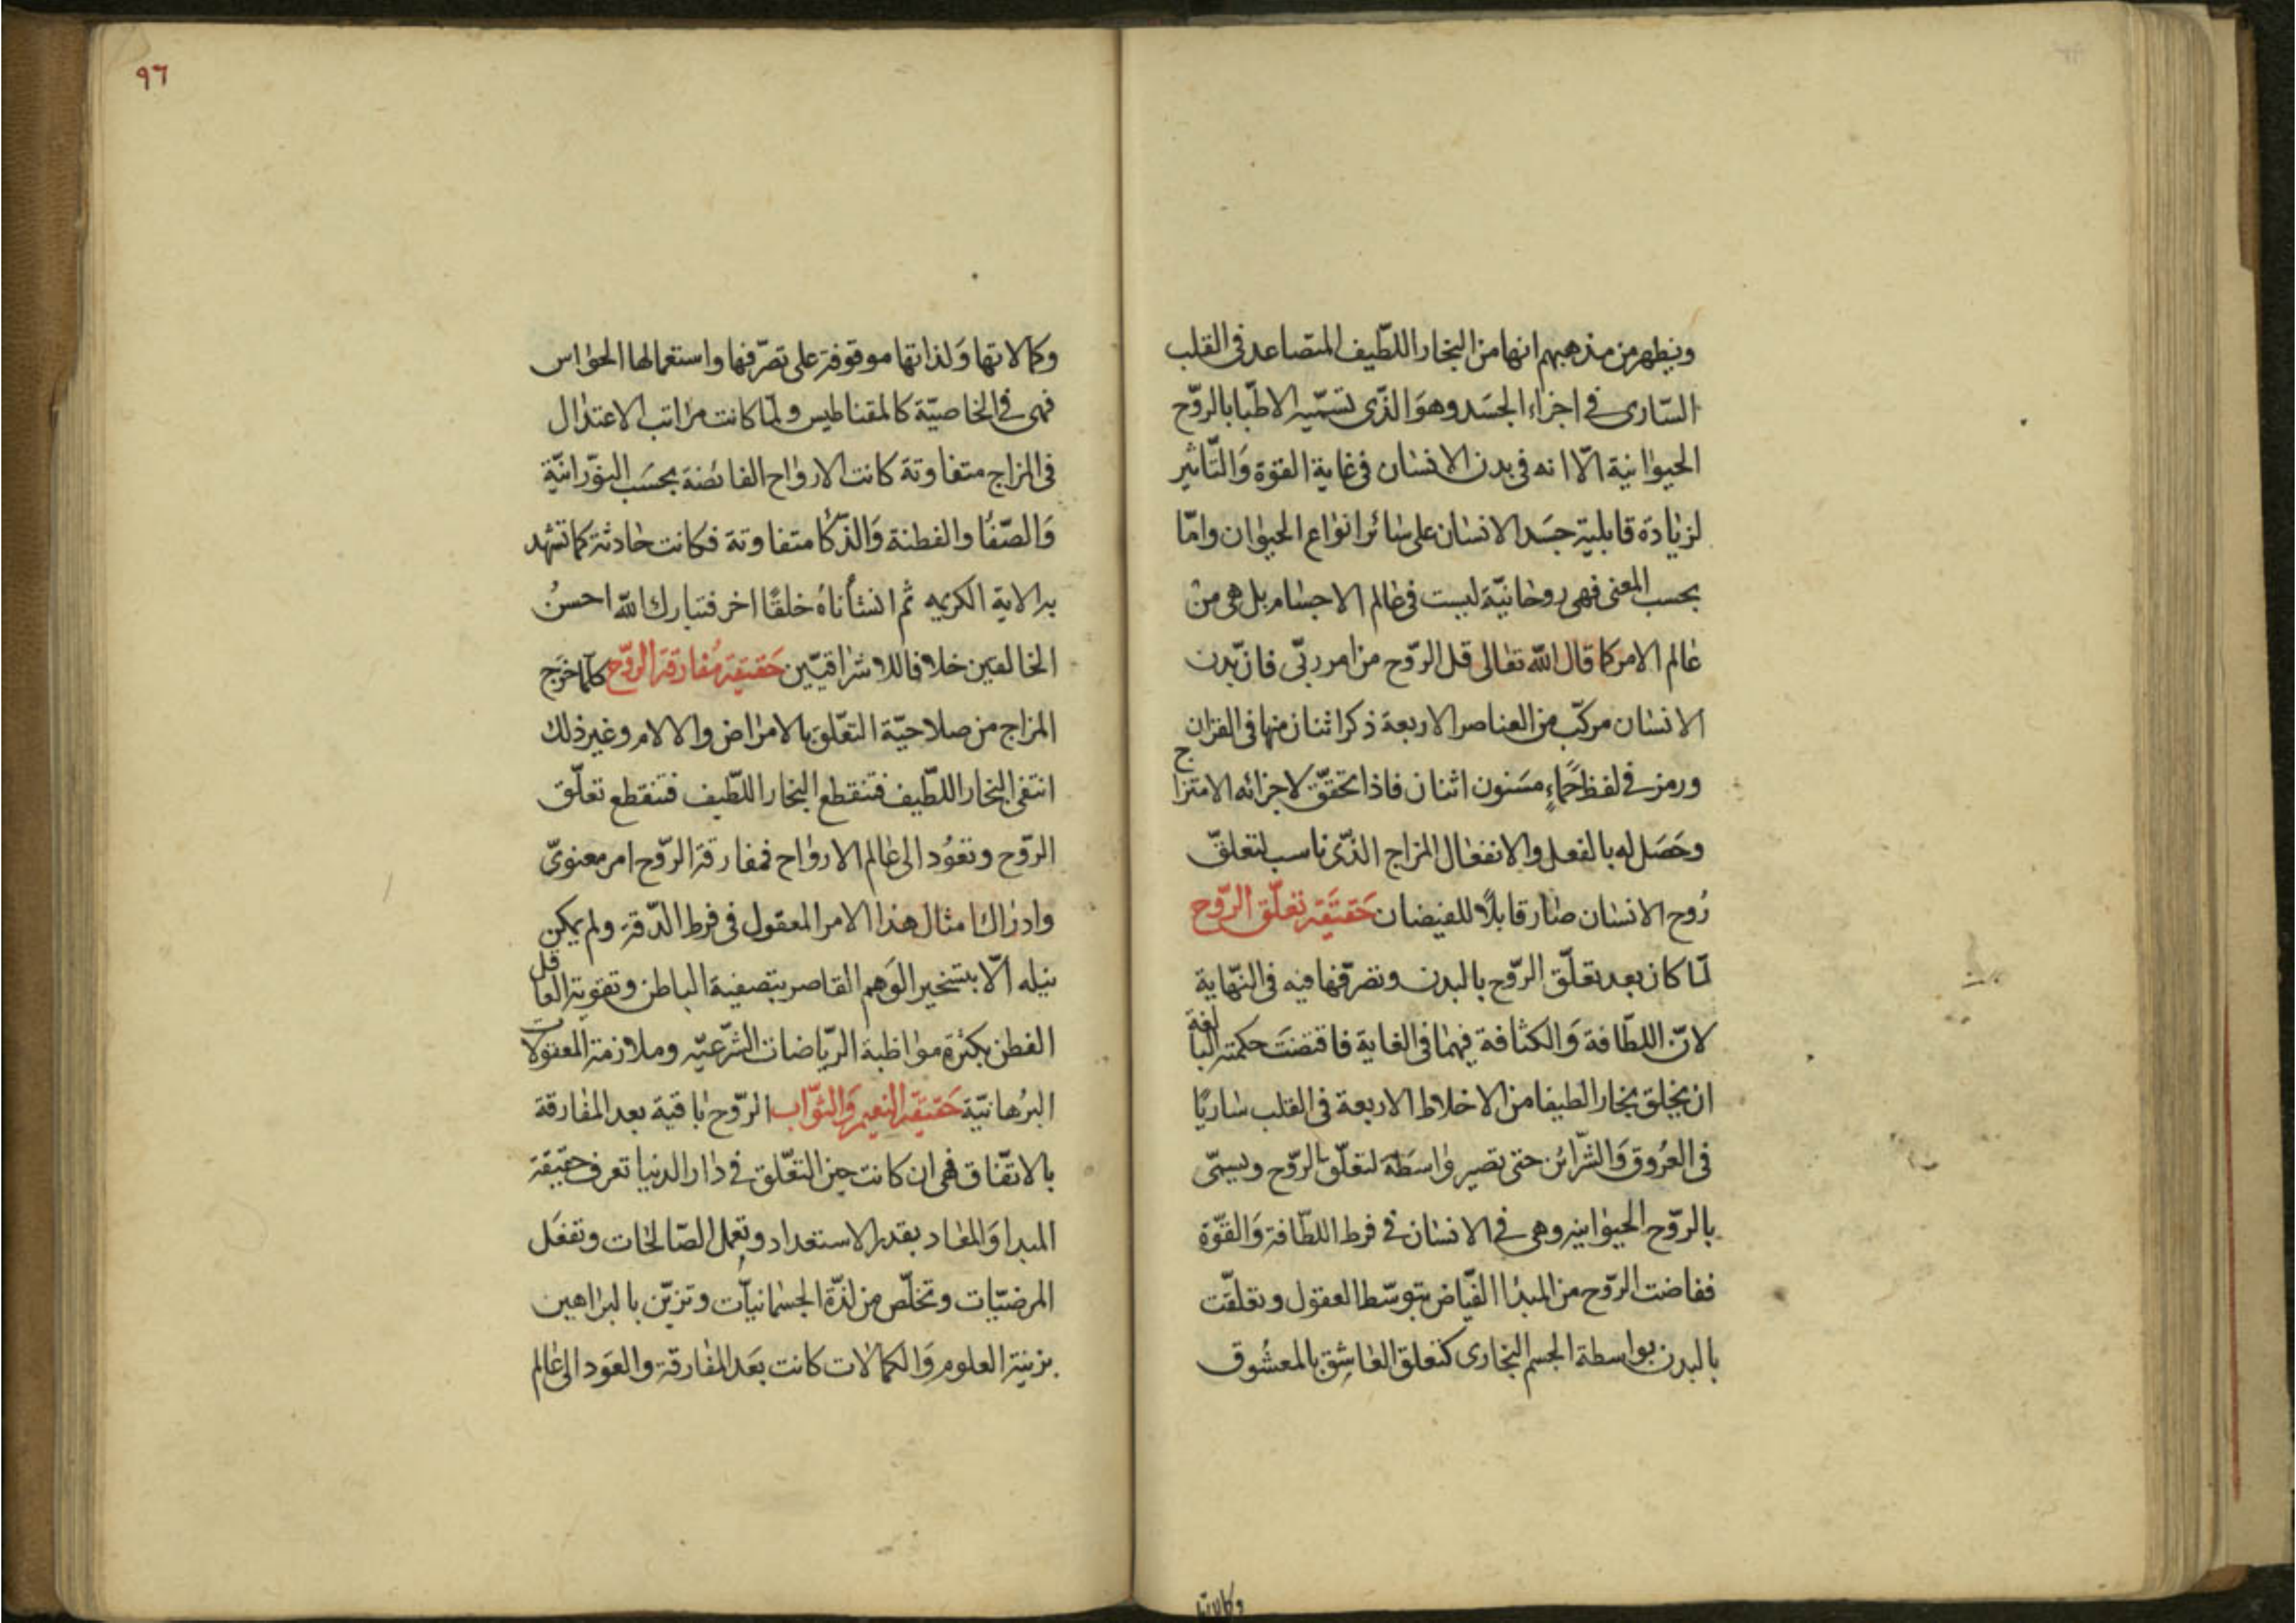 ويظهر من مذهبهم انها من البخار اللطيف المتصاعد فى القلب
السّارى فى اجزاء الجسَد وهوَ الذّى تسمّيه الاطبّا بالروّح
الحيوانية الّا انه فى بدن الانسان فى غاية القوّة وَالتّاثير
لزيادة قابلية جسَد الانسان على سائر انواع الحيوان وامّا
بحسب المعنى فهى روحانيّة ليست فى عالم الاجسام بل هى من
عالم الامر كما قال الله تعالى قل الروّح من امر ربّى فان بدن
الانسان مركّب من العناصر الاربعة ذكر اثنان منها فى القران
ورمز فى لفظ حَماءٍ مسَنون اثنان فاذا تحقّق لاجزائه الامتزاج
وحَصَل له بالفعل والانفعال المزاج الذّى ناسب لتعلّق
رُوح الانسان صار قابلاً للفيضان حَقيقَة تعلّق الروّح
لمّا كان بعد تعلّق الروّح بالبدن وتصرّفها فيه فى النّهاية
لانّ اللطّافة وَالكثافة فيهما فى الغاية فاقتضَت حكمته البالغة
ان يخلق بخارا لطيفا من الاخلاط الاربعة فى القلب ساريًا
فى العرُوق وَالشّرائن حتى تصير واسَطة لتعلّق الروّح ويسمّى
بالروّح الحيوانيه وهى فى الانسان فى فرط اللطّافة وَالقوّة
ففاضت الروّح من المبدأ الفيّاض بتوسّط العقول وتعلقّت
بالبدن بواسطة الجسم البخارى كتعلق العاشِق بالمعشُوق
وكالاتها
٩٦
وكالاتها وَلذاتها موقوفة على تصرّفها واستعمالها الحواس
فهى فى الخاصيّة كالمقناطيس ولمّا كانت مراتب الاعتدال
فى المزاج متفاوتة كانت الارواح الفائضة بحسَب النوّرانيّة
وَالصّفا والفطنة وَالذّكا متفاوتة فكانت حادثة كما تشهد
به الاية الكريمه ثمّ انشأناهُ خلقًا اخر فتبارك الله احسنُ
الخالقين خلافا للاشراقيّين حَقيقة مُفارقة الروّح كلّما خرَج
المزاج من صلاحيّة التعّلق بالامراض والالام وغير ذلك
انتفى البخار اللطّيف فتنقطع البخار اللطّيف فتنقطع تعلّق
الروّح وتعوُد الى عالم الارواح فمفارقة الروّح امر معنوىّ
وادراك امثال هذا الامر المعقول فى فرط الدّقة ولم يمكن
نيله الّا بتسخير الوَهم القاصر بتصفية الباطن وتقوية العاقل
الفطن بكثرة مواظبة الريّاضات الشّرعيّه وملازمة المعقولات
البرُهانيّة حَقيقَة النعيم وَالثوّاب الروّح باقية بعد المفارقة
بالاتفّاق فهى ان كانت حين التعّلق فى دار الدنيا تعرف حقيقة
المبدا وَالمعاد بقدر الاستعداد وتعمل الصّالحات وتفعَل
المرضيّات وتخلّص من لذّة الجسمانيّات وتزيّن بالبراهين
بزينة العلوم وَالكمالات كانت بعَد المفارقة والعَود الى عالم